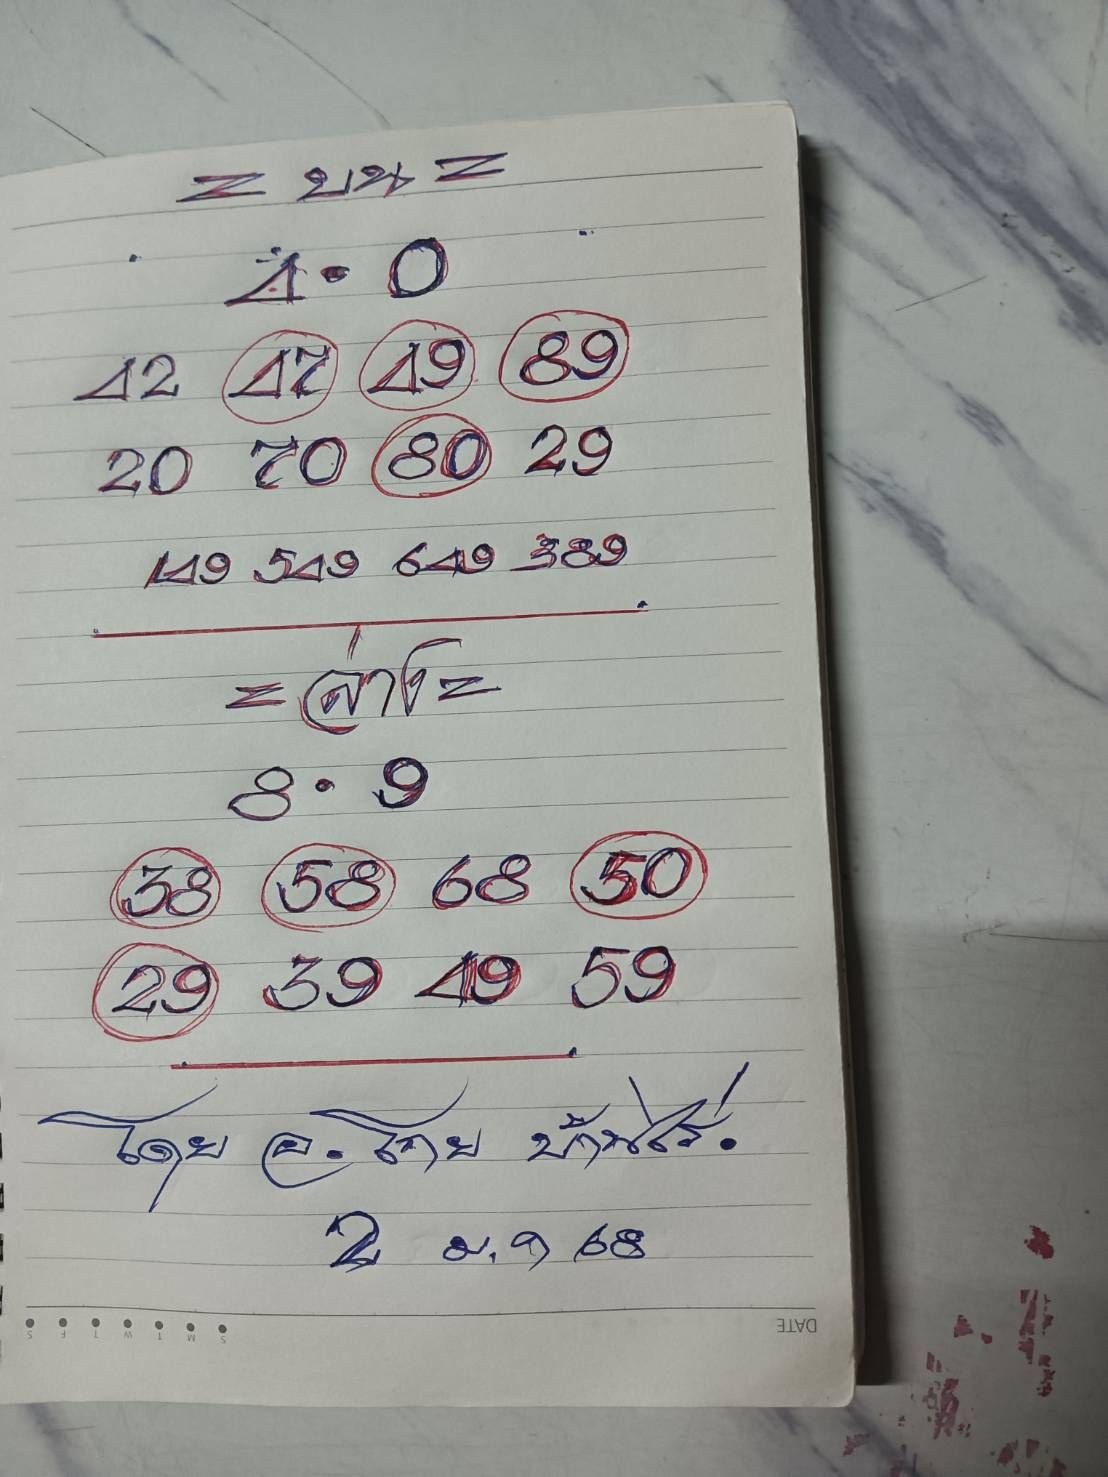 = บน =
4 • 0
42 47 49 89
20 70 80 29
149 549 649 389
= ล่าง =
8 • 9
38 58 68 50
29 39 49 59
โดย อ. ไทย บ้านไร่.
2 ม.ค 68
DATE
S M T W T F S